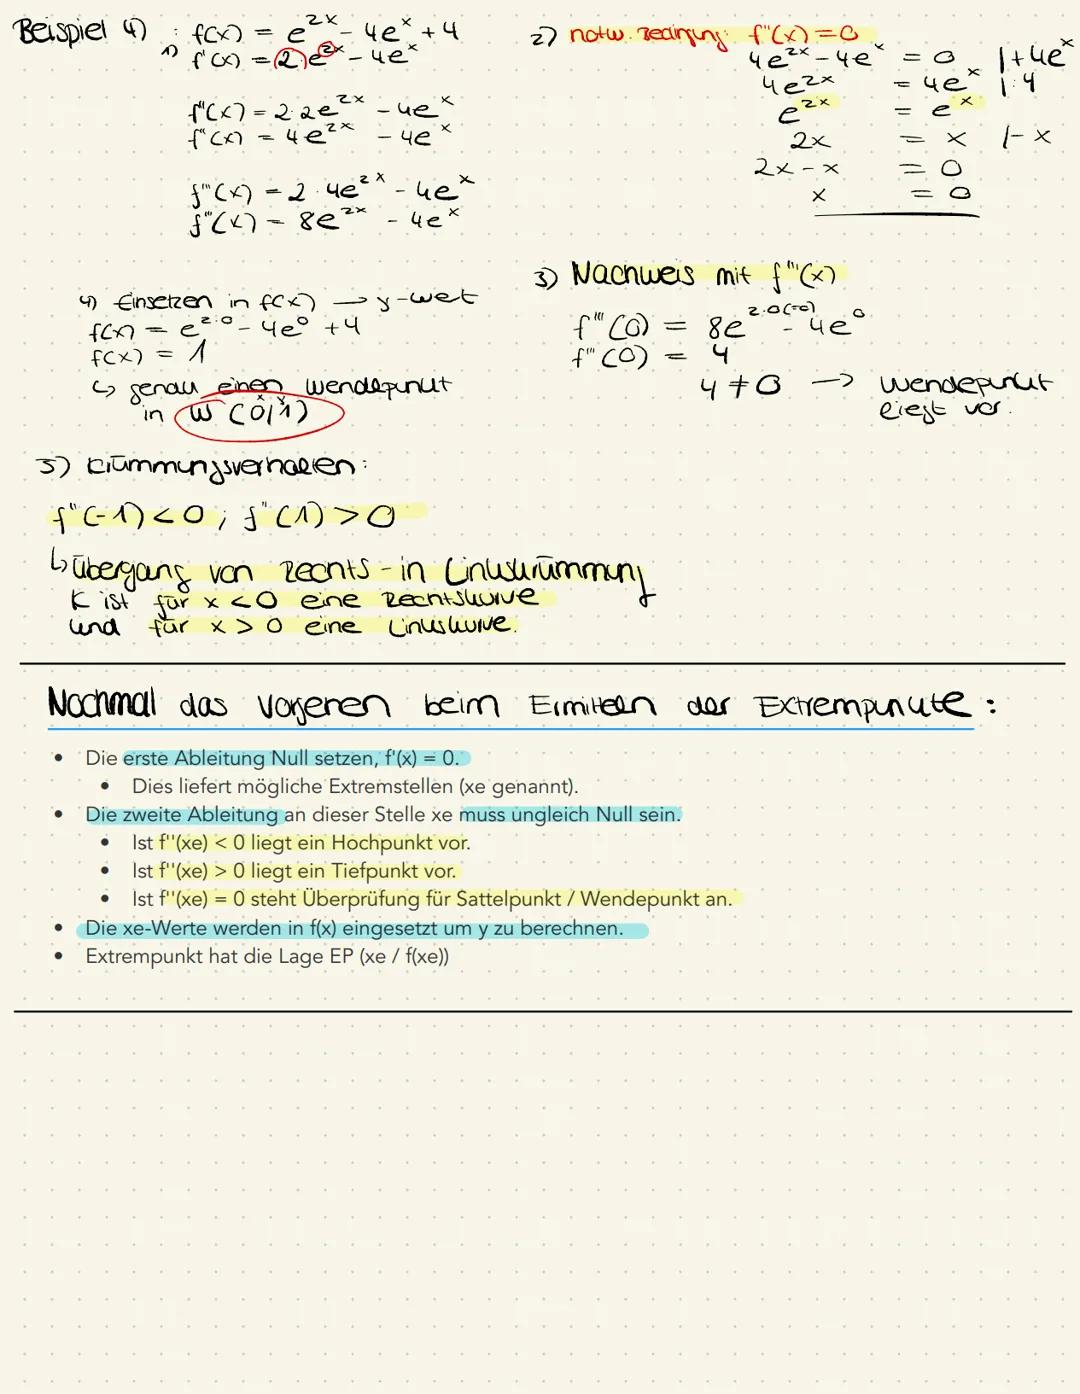 Beispiel 4) : f(x) = e^2x - 4e^x + 4
1) f'(x) = 2e^2x - 4e^x
f"(x) = 2·2e^2x - 4e^x
f"(x) = 4e^2x - 4e^x
f'''(x) = 2·4e^2x - 4e^x
f'''(x) = 8e^2x - 4e^x
2) notw. Bedingung: f"(x) = 0
4e^2x - 4e^x = 0 |+4e^x
4e^2x = 4e^x |:4
e^2x = e^x
2x = x |-x
2x - x = 0
x = 0
3) Nachweis mit f'''(x)
f'''(0) = 8e^2·0 - 4e^0
f'''(0) = 4
4 ≠ 0 → Wendepunkt
liegt vor.
4) Einsetzen in f(x) → y-wet
f(x) = e^2·0 - 4e^0 + 4
f(x) = 1
↳ genau einen Wendepunkt
in W (0|1)
x y
5) Krümmungsverhalten:
f"(-1) < 0 ; f"(1) > 0
↳ Übergang von Rechts - in Linkskrümmung
K ist für x < 0 eine Rechtskurve
und für x > 0 eine Linkskurve.
Nochmal das Vorgehen beim Ermitteln der Extrempunkte :
• Die erste Ableitung Null setzen, f'(x) = 0.
• Dies liefert mögliche Extremstellen (xe genannt).
• Die zweite Ableitung an dieser Stelle xe muss ungleich Null sein.
• Ist f''(xe) < 0 liegt ein Hochpunkt vor.
• Ist f''(xe) > 0 liegt ein Tiefpunkt vor.
• Ist f''(xe) = 0 steht Überprüfung für Sattelpunkt / Wendepunkt an.
• Die xe-Werte werden in f(x) eingesetzt um y zu berechnen.
• Extrempunkt hat die Lage EP (xe / f(xe))